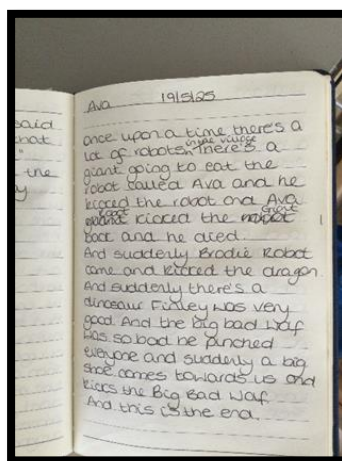 said
that
the
y
Ava 19/5/25
once upon a time there's a
lot of robots in the village There's a
giant going to eat the
robot called Ava and he
kicked the robot and Ava
Robot kicked the Giant
back and he died.
And suddenly Brodie Robot
came and kicked the dragon.
And suddenly there's a
dinosaur Finley was very
good. And the Big bad Waf
was so bad he punched
everyone and suddenly a big
shoe comes towards us and
kicks the Big Bad Waf
And this is the end.